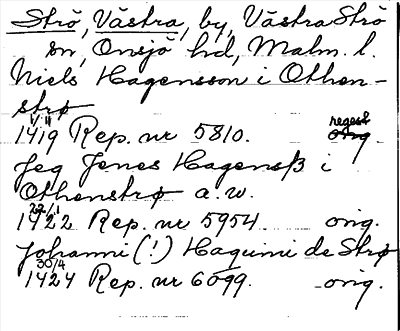 Strö, Västra, by, Västra Strö
sn, Onsjö hd, Malm. l.
Niels Hagensson i Othen-
strø
1/11 1419 Rep. nr 5810. regest orig.
Jeg Jenes Hagensß i
Othenstrø a. w.
22/1 1422 Rep. nr 5954. orig.
Johanni (!) Haquini de Strø
30/4 1424 Rep. nr 6099. orig.